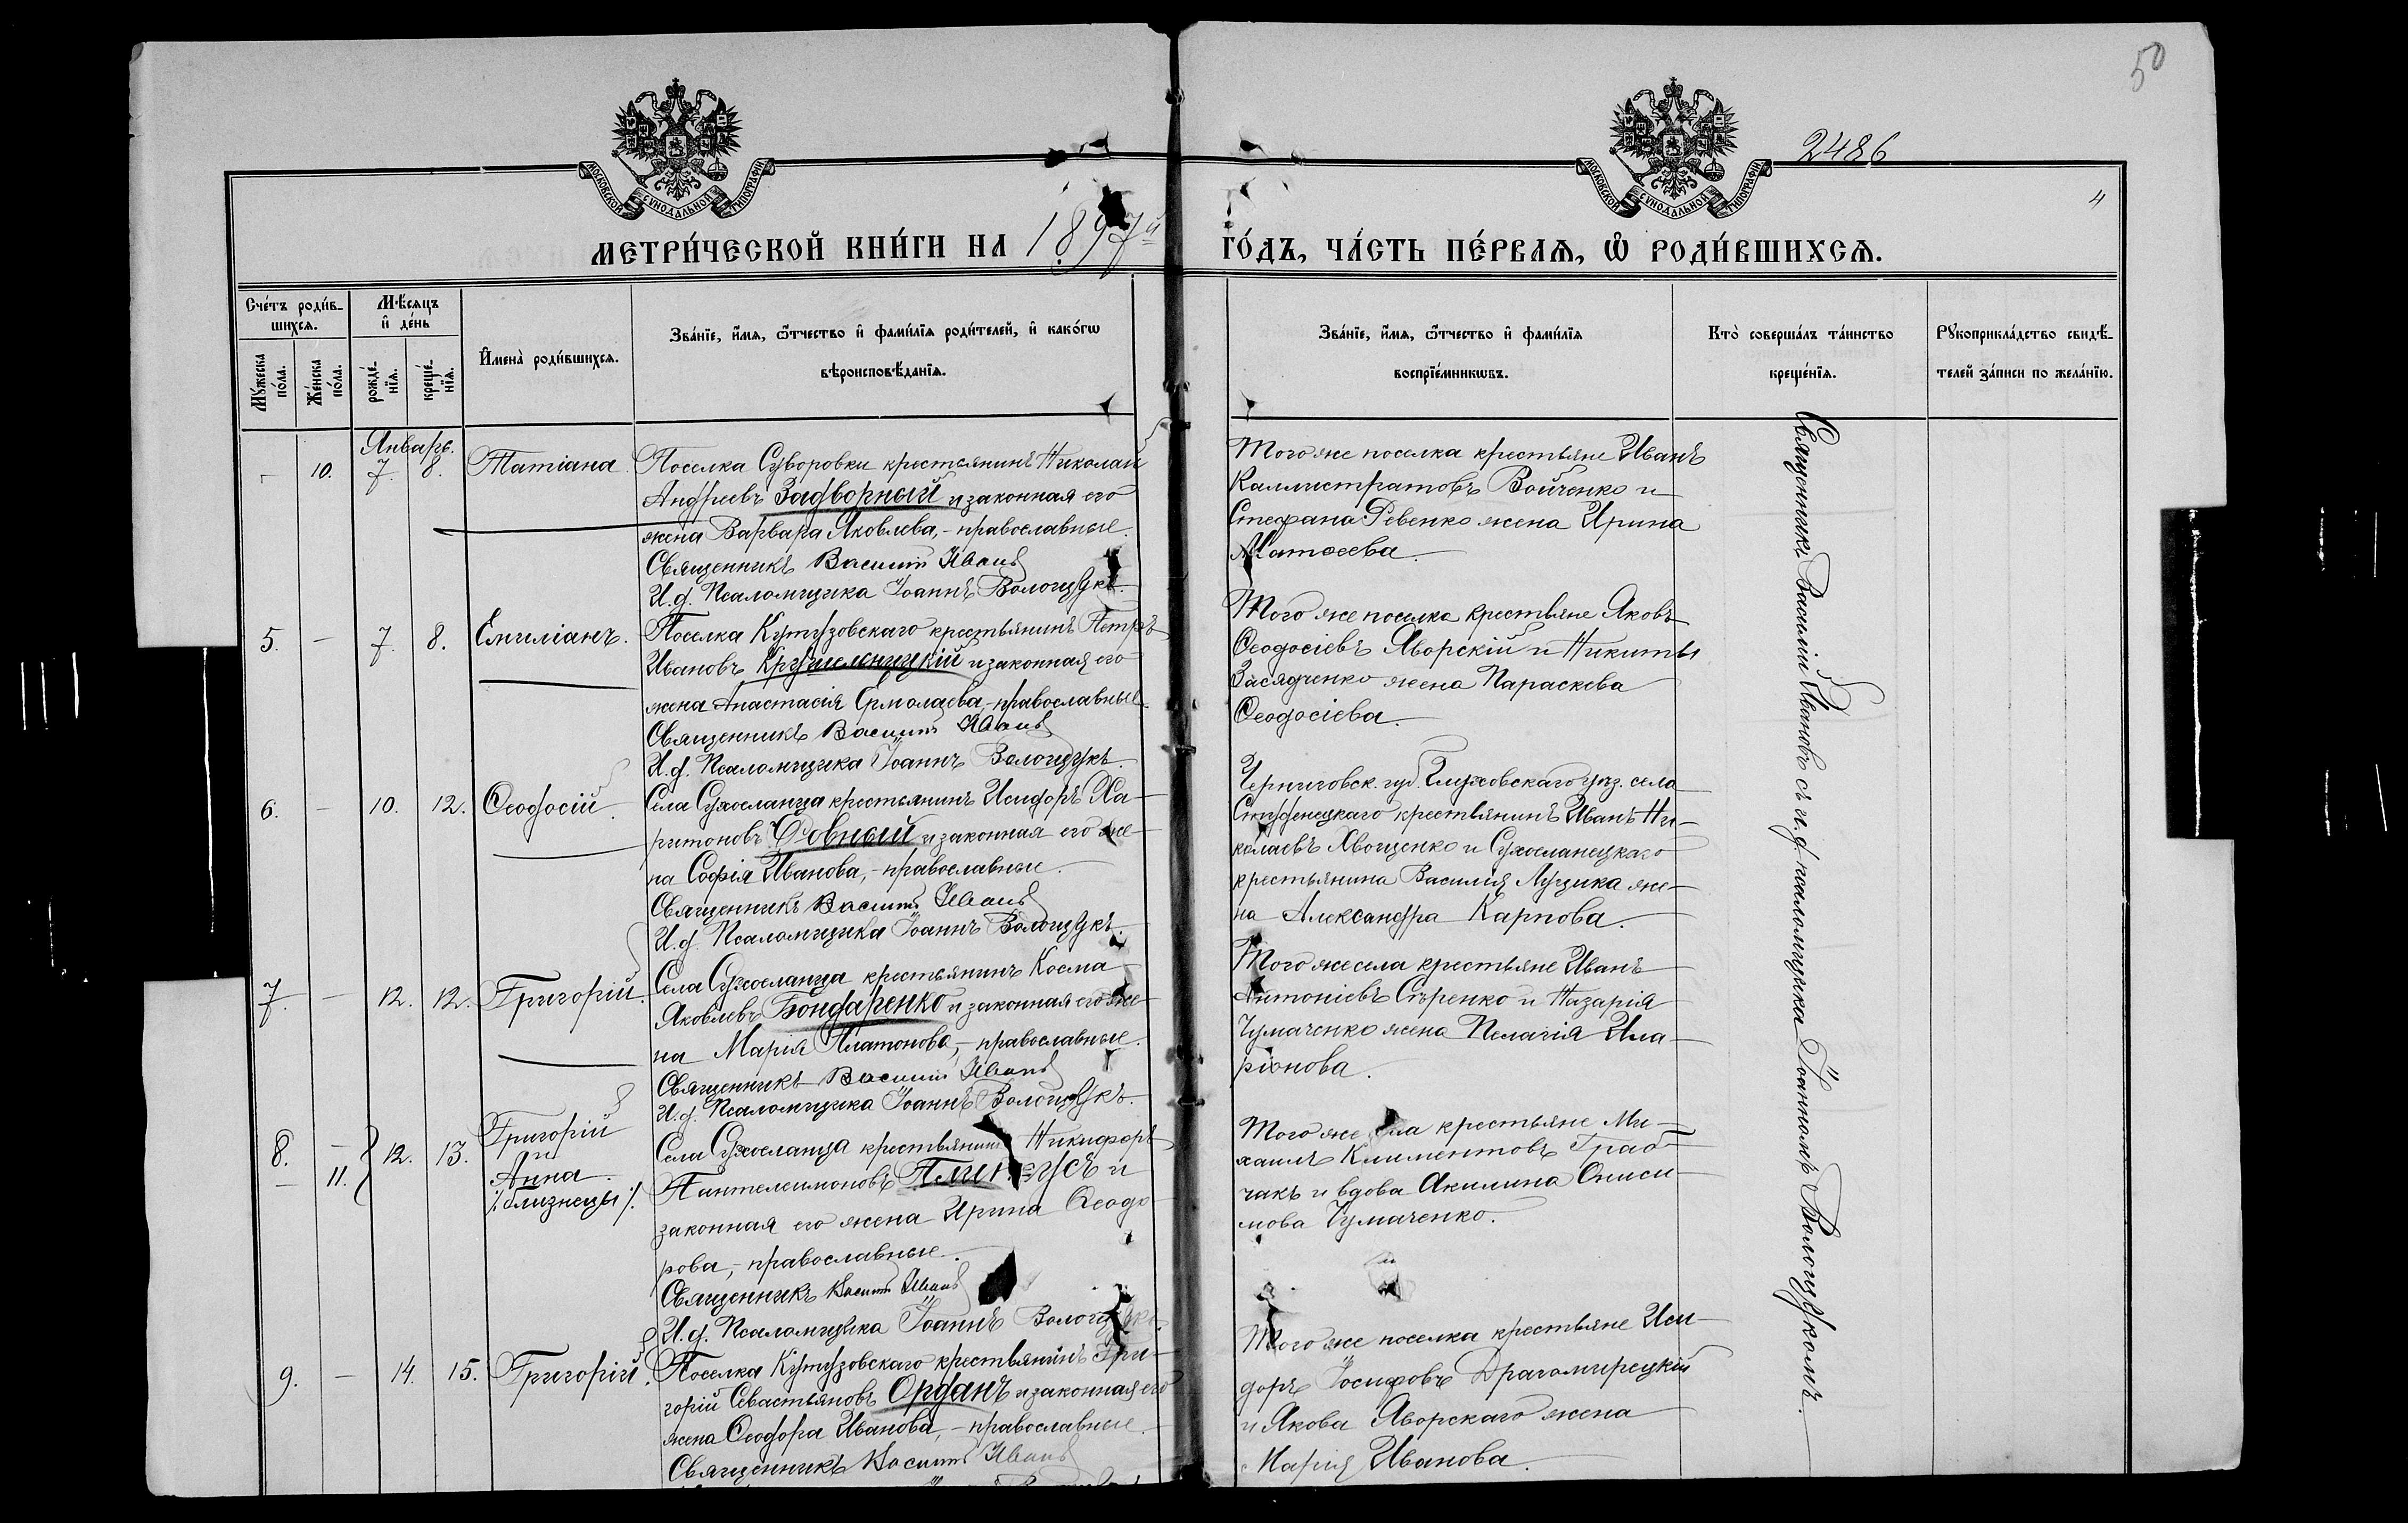 50
2486
4
МОСКОВСКОЙ СѴНОДАЛЬНОЙ ТИПОГРАФІИ
МОСКОВСКОЙ СѴНОДАЛЬНОЙ ТИПОГРАФІИ
МЕТРИ́ЧЕСКОЙ КНИ́ГИ НА 1897й ГО́ДЪ, ЧА́СТЬ ПЕ́РВАѦ, Ѽ РОДИ́ВШИХСѦ.
Сче́тъ роди́в-
шихсѧ.
Мꙋ́жеска по́ла.
Же́нска по́ла.
Мѣ́сѧцъ
и҆ де́нь
рожде́-нїѧ.
креще́-нїѧ.
И҆мена̀ роди́вшихсѧ.
Зва́нїе, и҆́мѧ, ѻ҆́тчество и҆ фами́лїѧ роди́телей, и҆ како́гѡ
вѣроисповѣ́данїѧ.
Зва́нїе, и҆́мѧ, ѻ҆́тчество и҆ фами́лїѧ
воспрїе́мникѡвъ.
Кто̀ соверша́лъ та́инство
креще́нїѧ.
Рꙋкоприкла́дство свидѣ́-
телей за́писи по жела́нїю.
Январь.
– 10. 7. 8. Татіана.
Поселка Суворовки крестьянинъ Николай
Андреевъ Задворный и законная его
жена Варвара Яковлева, - православные.
Священникъ Василій Ивановъ
И.д. Псаломщика Іоаннъ Волощукъ.
Того же поселка крестьяне Иванъ
Каллистратовъ Войченко и
Стефана Ревенко жена Ирина
Матѳеева.
5. – 7. 8. Емиліанъ.
Поселка Кутузовскаго крестьянинъ Петръ
Ивановъ Кружмельницкій и законная его
жена Анастасія Ермолаева, - православные.
Священникъ Василій Ивановъ
И.д. Псаломщика Іоаннъ Волощукъ.
Того же поселка крестьяне Яковъ
Ѳеодосіевъ Яворскій и Никиты
Засядченко жена Параскева
Ѳеодосіева.
6. – 10. 12. Ѳеодосій.
Села Сухоеланца крестьянинъ Исидоръ Ха-
ритоновъ Ровный и законная его же-
на Софія Иванова, - православные.
Священникъ Василій Ивановъ
И.д. Псаломщика Іоаннъ Волощукъ.
Черниговск. губ. Глуховскаго уѣз. села
Студенецкаго крестьянинъ Иванъ Ни-
колаевъ Хвощенко и Сухоеланецкаго
крестьянина Василія Луцика же-
на Александра Карпова.
7. – 12. 12. Григорій.
Села Сухоеланца крестьянинъ Косма
Яковлевъ Бондаренко и законная его же-
на Марія Платонова, - православные.
Священникъ Василій Ивановъ
И.д. Псаломщика Іоаннъ Волощукъ.
Того же села крестьяне Иванъ
Антоніевъ Сѣренко и Назарія
Чумаченко жена Пелагія Ила-
ріонова.
8. – 12. 13. Григорій
и
– 11. Анна
/: близнецы :/.
Села Сухоеланца крестьянинъ Никифоръ
Пантелеимоновъ и
законная его жена Ирина Ѳеодо
рова, - православные.
Священникъ Василій Ивановъ
И.д. Псаломщика Іоаннъ Волощукъ.
Того же села крестьяне Ми-
хаилъ Климентовъ Граб-
чакъ и вдова Акилина Ониси-
мова Чумаченко.
9. – 14. 15. Григорій.
Поселка Кутузовскаго крестьянинъ Гри-
горій Севастьяновъ Орданъ и законная его
жена Ѳеодора Иванова, - православные.
Священникъ Василій Ивановъ
Того же поселка крестьяне Иси-
доръ Іосифовъ Драгомирецкій
и Якова Яворскаго жена
Марія Иванова.
Священникъ Василій Ивановъ съ и.д. псаломщика Іоанномъ Волощукомъ.